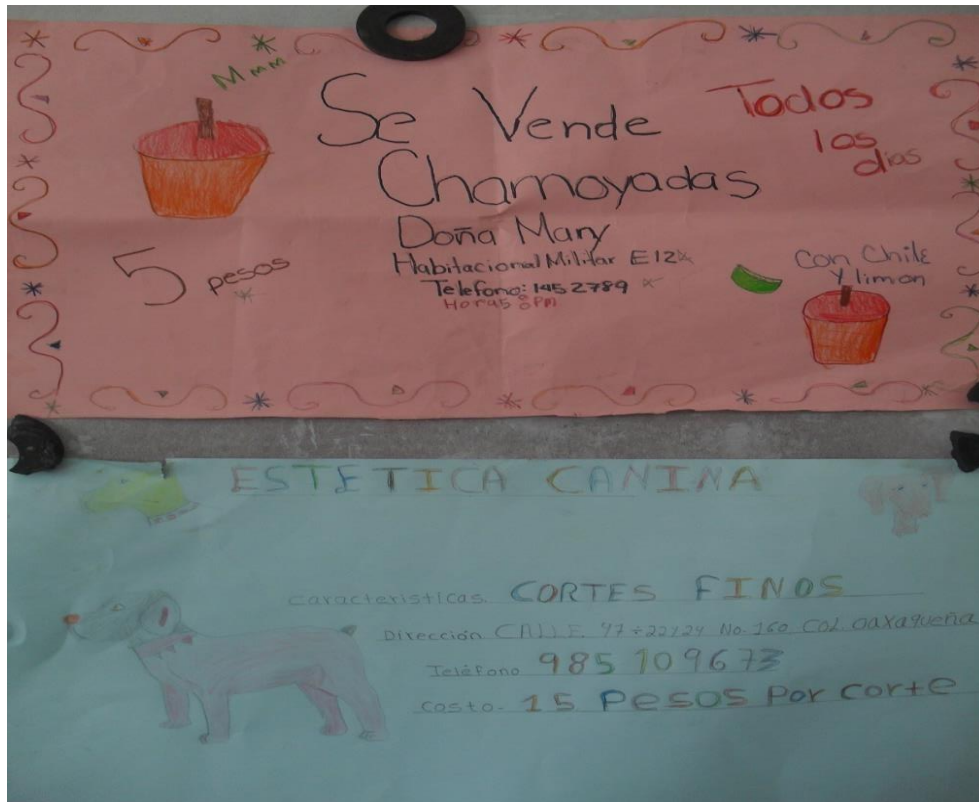 Mmm
Se Vende
Chamoyadas
Todos
los
dias
Doña Mary
Habitacional Militar E12
Telefono: 1452789
Horas 8 Pm
5 pesos
Con Chile
Y limon
ESTETICA CANINA
Caracteristicas. CORTES FINOS
Dirección. CALLE. 47 22y24 No. 160 COL. Oaxaqueña
Teléfono 985 109673
Costo. 15 Pesos Por corte